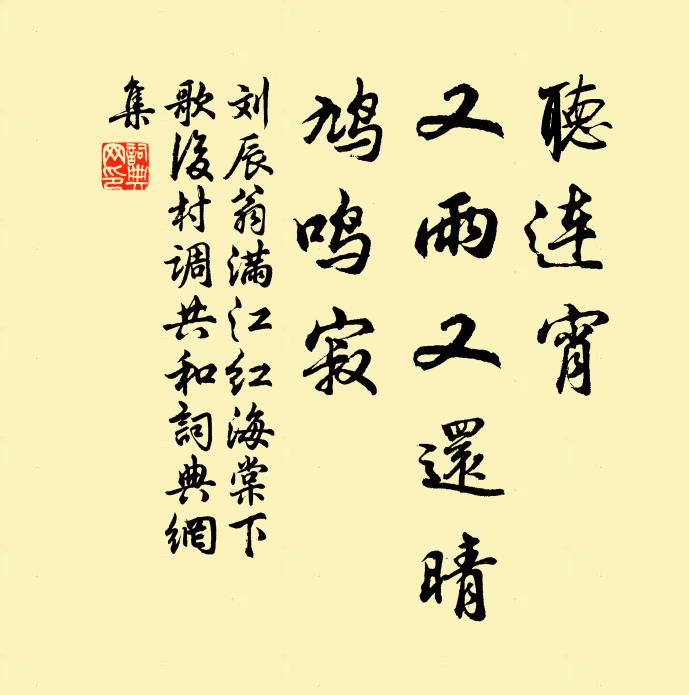 聽连宵
又雨又還晴
鸠鸣寂
刘辰翁满江红海棠下
歌後村调共和詞典網
集
詞典
网印